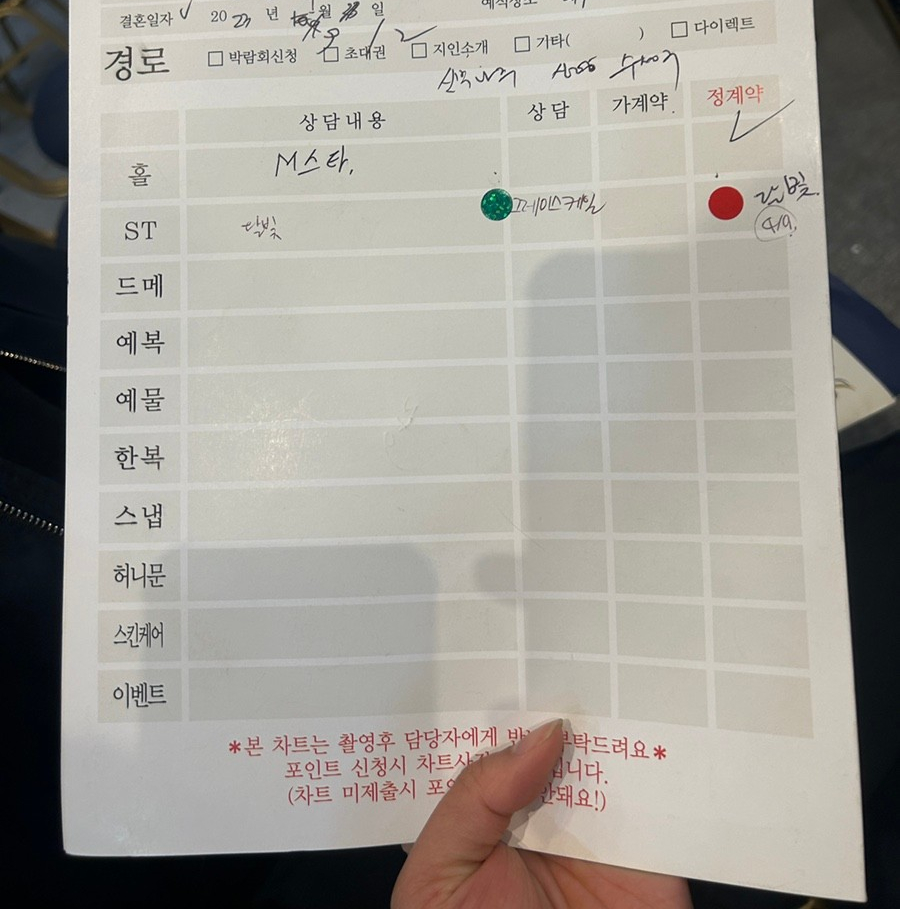 결혼일자 20 23 년 월 일
경로 □ 박람회신청 □ 초대권 □ 지인소개 □ 기타( ) □ 다이렉트
상담내용 상담 가계약 정계약
홀 M스타.
ST 달빛 그레이스케일 달빛.
4/9.
드메
예복
예물
한복
스냅
허니문
스킨케어
이벤트
*본 차트는 촬영후 담당자에게 부탁드려요*
포인트 신청시 입니다.
(차트 미제출시 안돼요!)